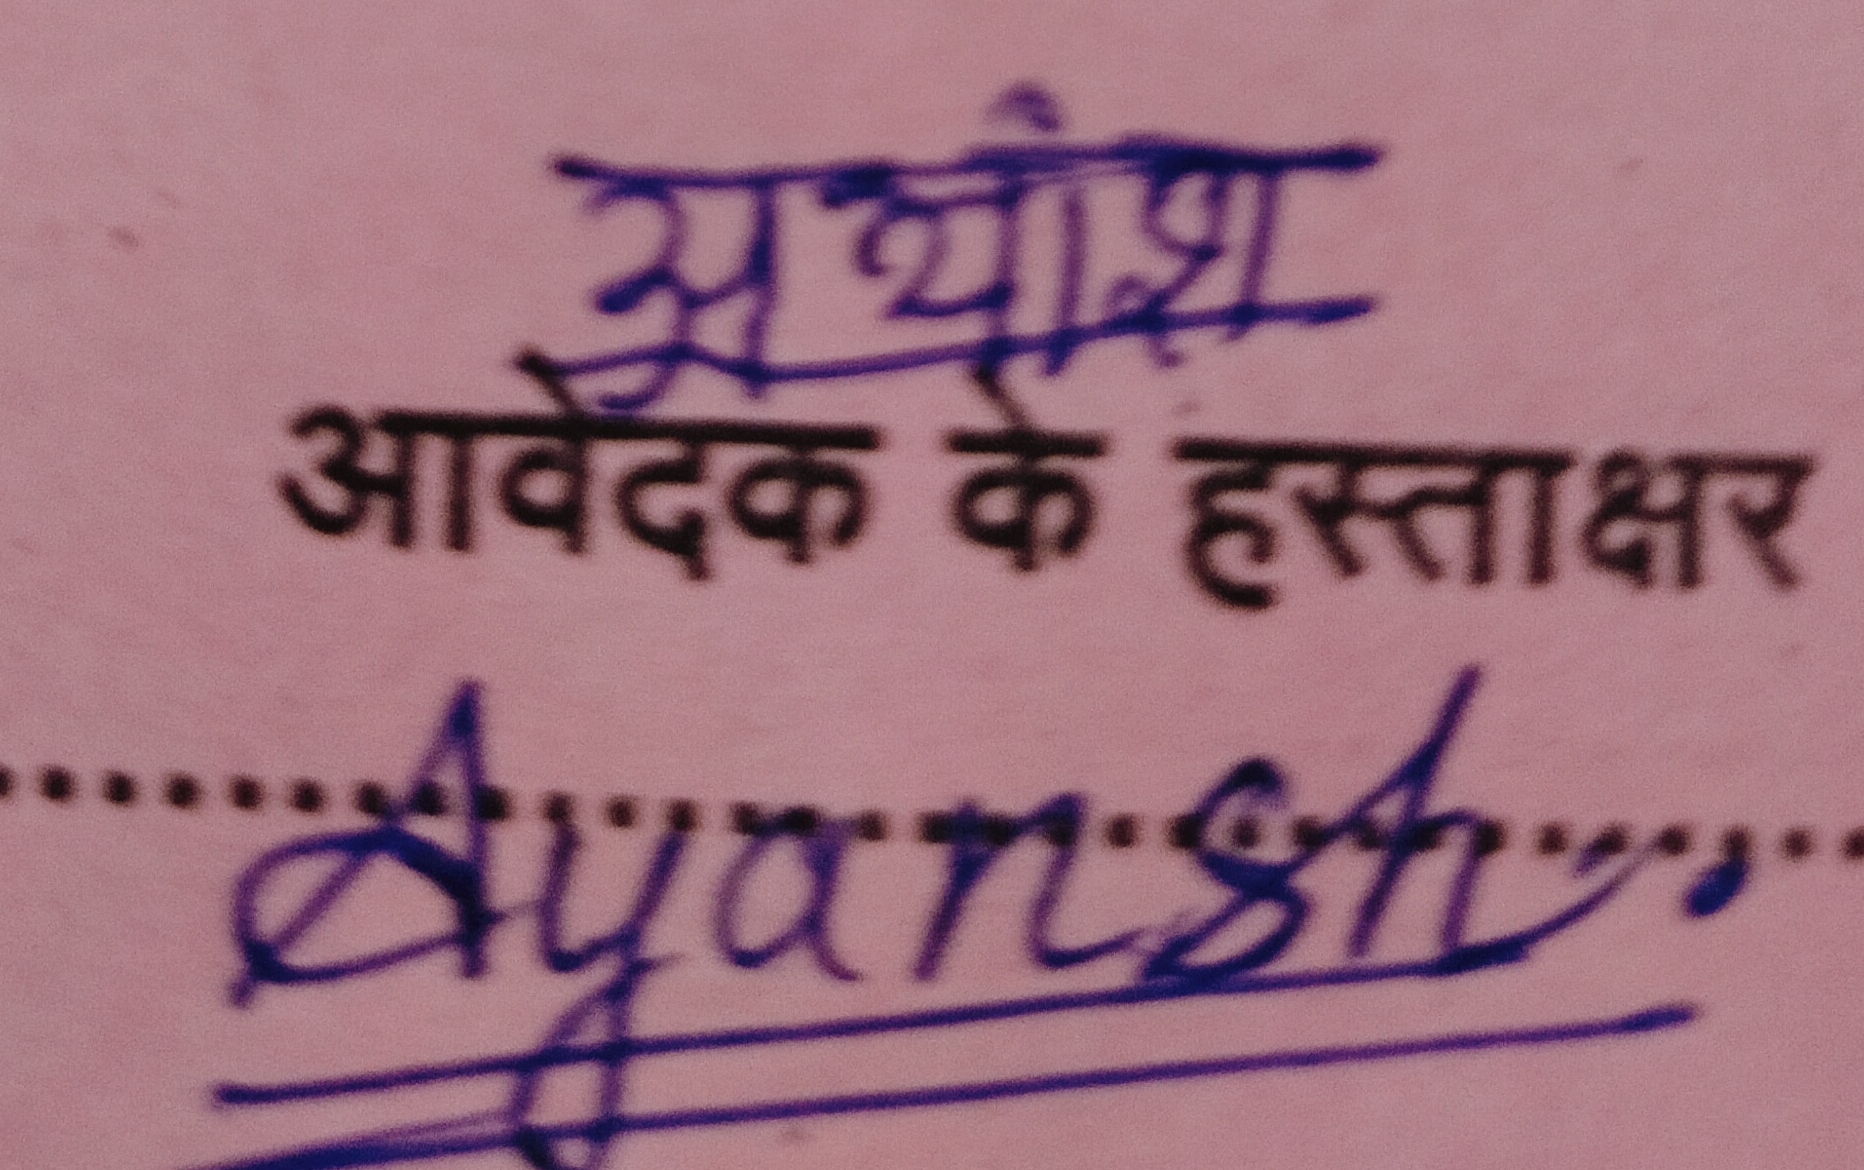 अयांश
आवेदक के हस्ताक्षर
Ayansh.